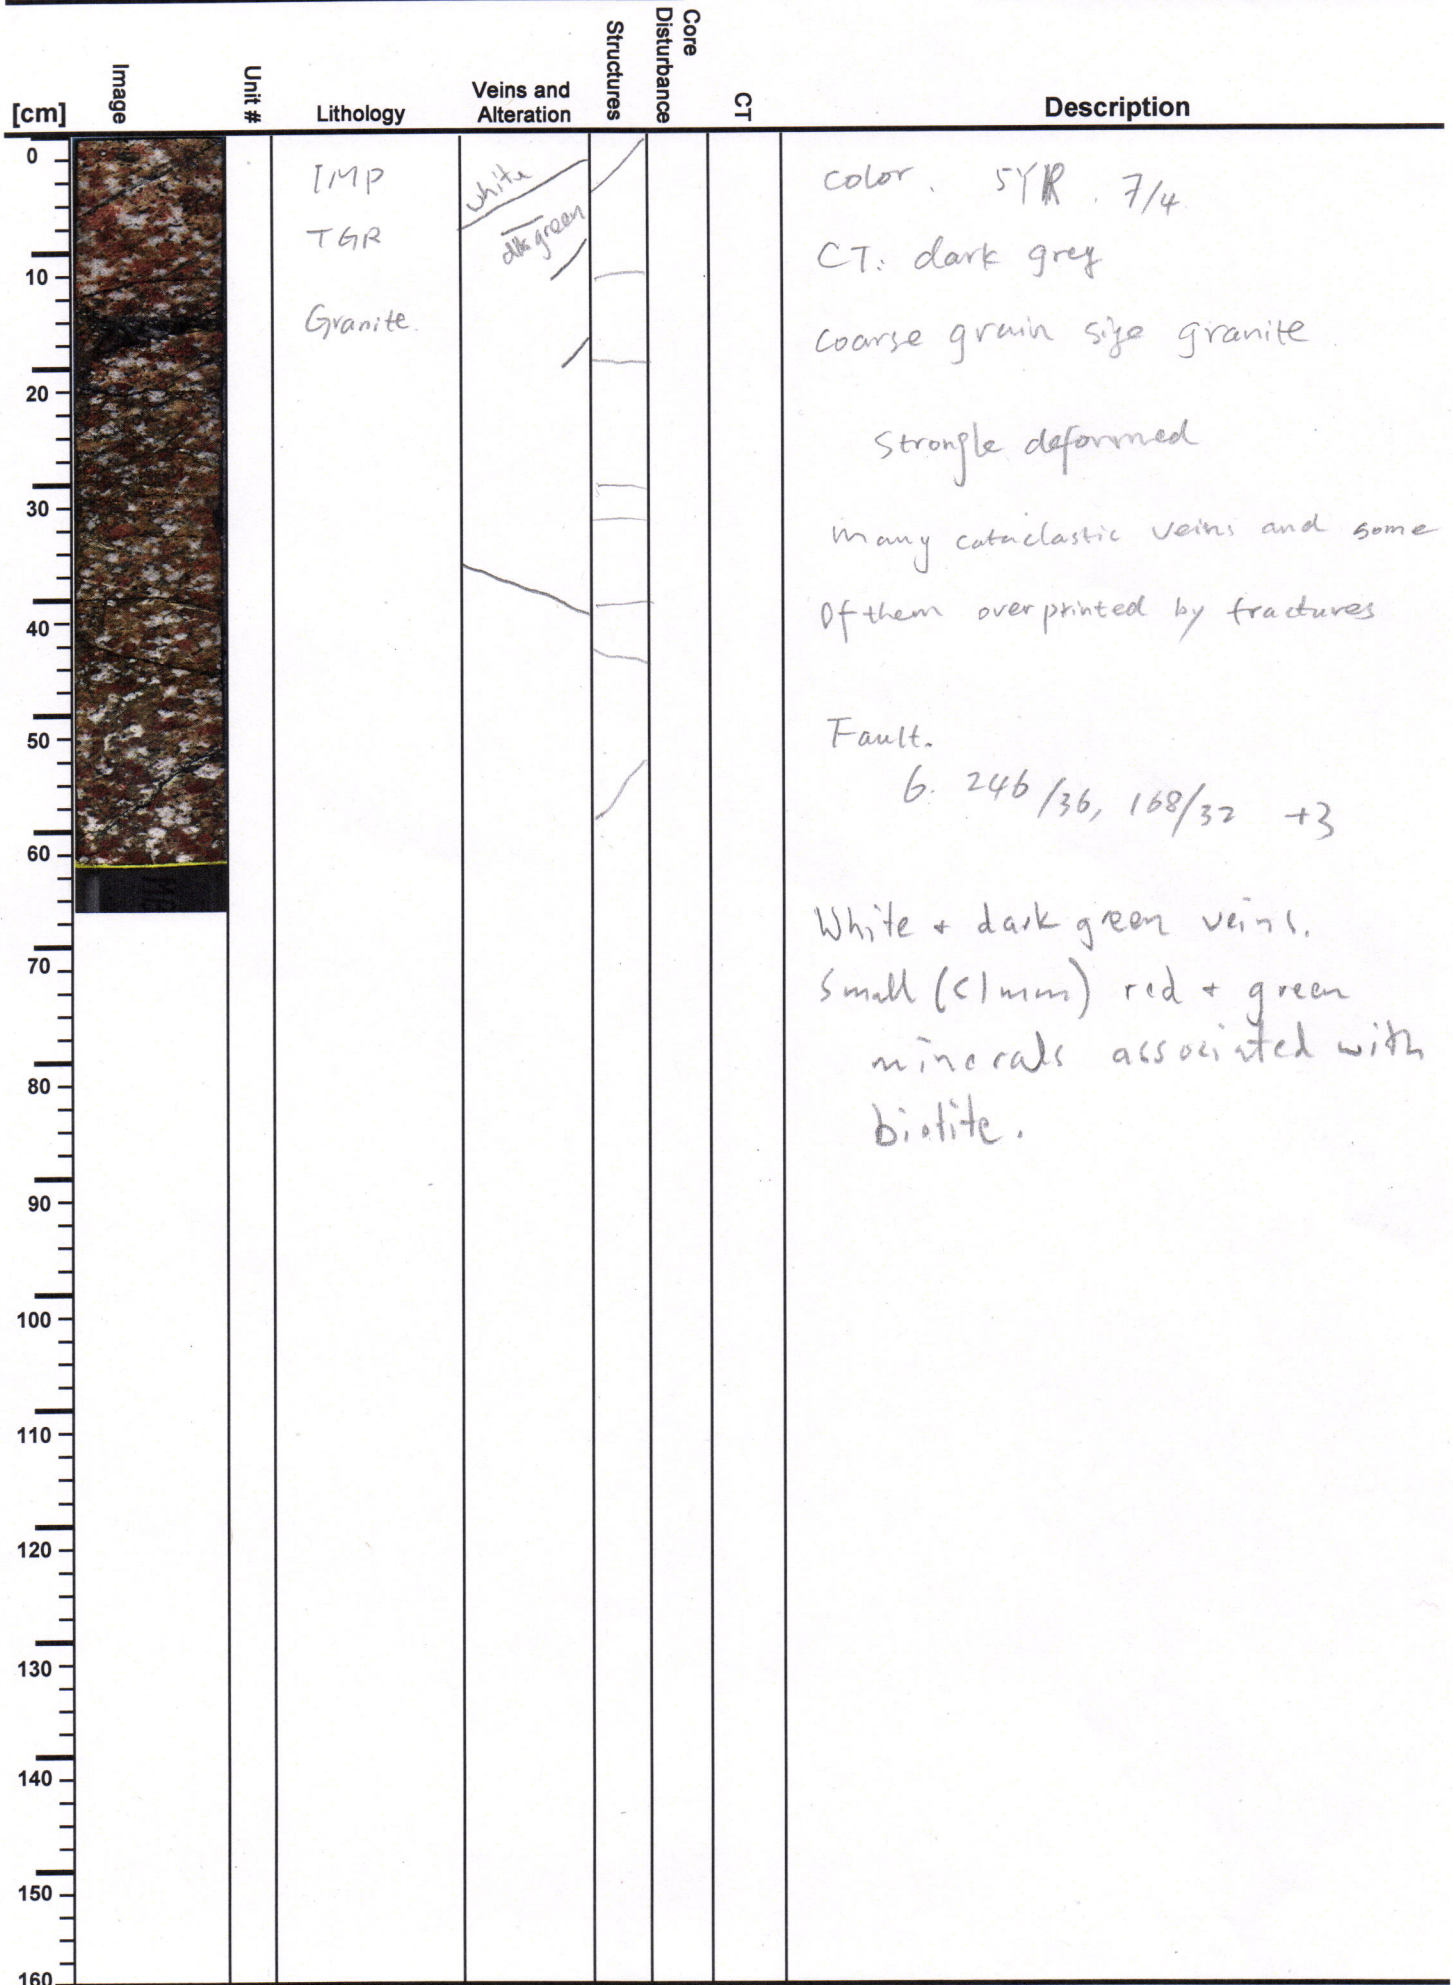 [cm]
Image
Unit #
Lithology
Veins and
Alteration
Structures
Core
Disturbance
CT
Description
0
10
20
30
40
50
60
70
80
90
100
110
120
130
140
150
160
IMP
TGR
Granite.
white
dk green
color. 5YR. 7/4
CT: dark grey
coarse grain size granite
Strongle deformed
many cataclastic veins and some
Of them overprinted by fractures
Fault.
6. 246/36, 168/32 +3
White + dark green veins.
Small (<1mm) red + green
minerals associated with
biotite.